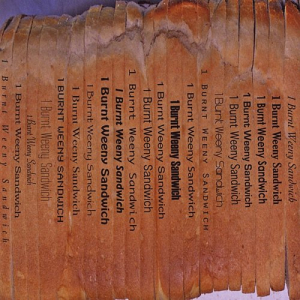 1 Burnt Weeny Sandwich
1 Burnt Weeny Sandwich
Burnt Weeny Sandwich
1 Burnt Weeny Sandwich
1 BURNT WEENY SANDWICH
1 Burnt Weeny Sandwich
1 Burnt Weeny Sandwich
1 Burnt Weeny Sandwich
1 Burnt Weeny Sandwich
1 Burnt Weeny Sandwich
1 Burnt Weeny Sandwich
1 Burnt Weeny Sandwich
1 Burnt Weeny Sandwich
1 Burnt Weeny Sandwich
1 BURNT WEENY SANDWICH
1 Burnt Weeny Sandwich
1 Burnt Weeny Sandwich
1 Burnt Weeny Sandwich
1 Burnt Weeny Sandwich
1 Burnt Weeny Sandwich
1 Burnt Weeny Sandwich